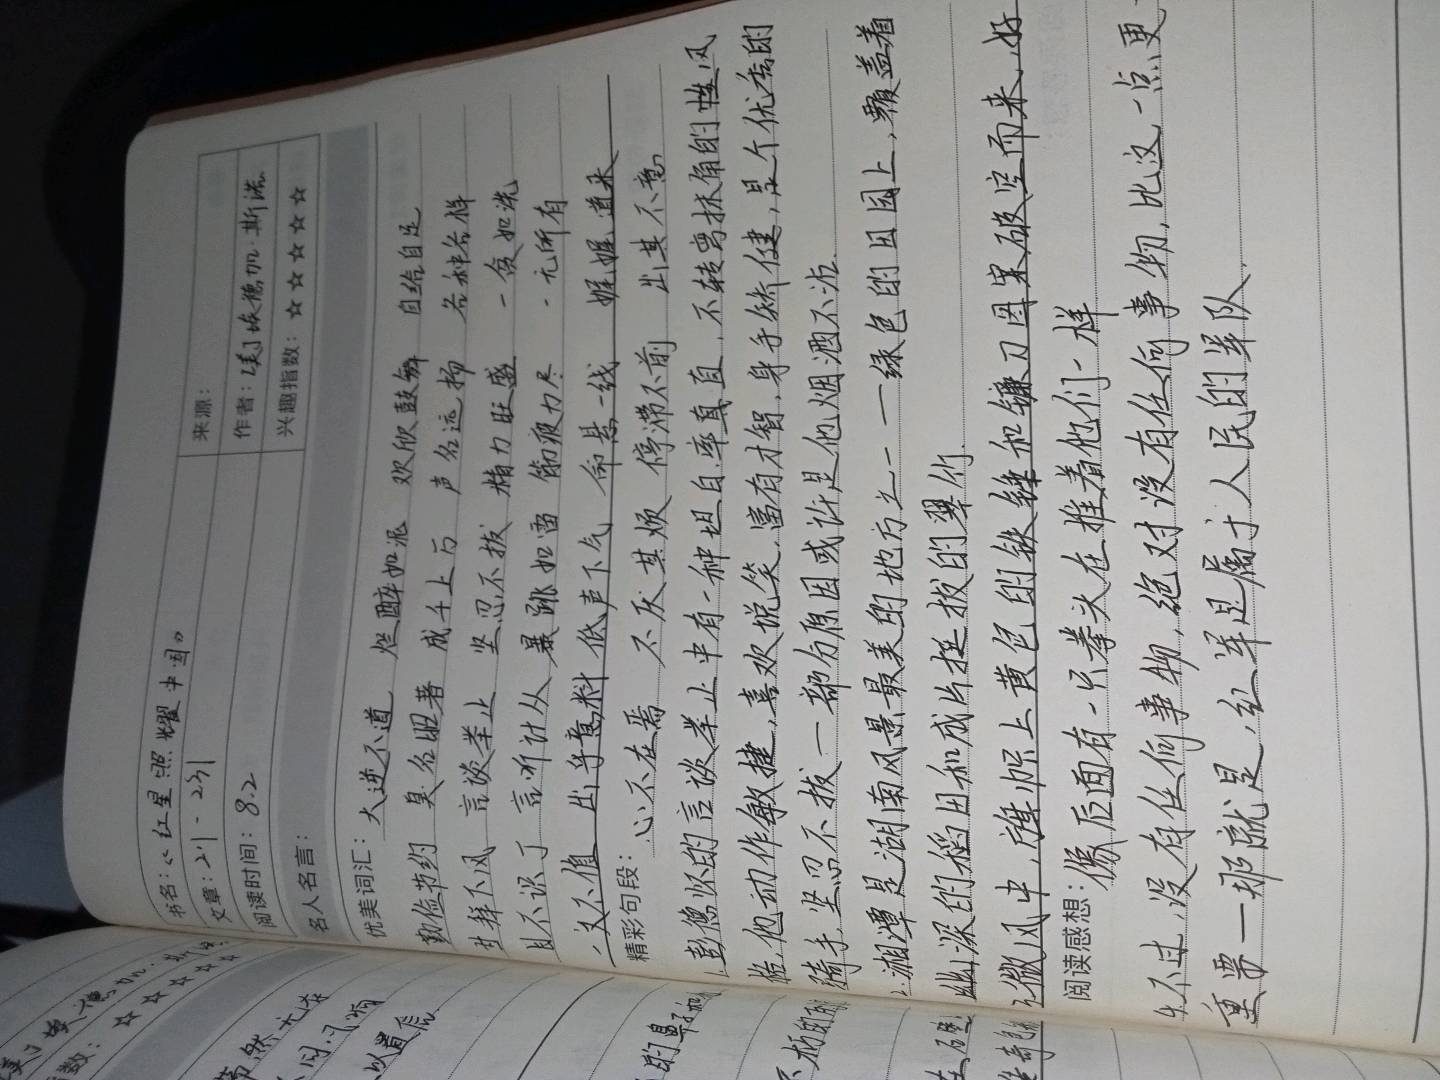 书名：《红星照耀中国》
来源：
文章：211-231
作者：[美]埃德加·斯诺
阅读时间：8.2
兴趣指数：☆☆☆☆☆
名人名言：
优美词汇：大逆不道 烂醉如泥 欢欣鼓舞 自给自足
勤俭节约 臭名昭著 成千上万 声名远扬 各种各样
甘拜下风 言谈举止 坚忍不拔 精力旺盛 一贫如洗
目不识丁 言听计从 暴跳如雷 筋疲力尽 一无所有
一文不值 出乎意料 低声下气 命悬一线 娓娓道来
心不在焉 不厌其烦 停滞不前 出其不意
精彩句段：
1.彭德怀的言谈举止中有一种坦白率真直，不转弯抹角的性风
格，他动作敏捷，喜欢说笑，富有才智，身手矫健，是个优秀的
骑手，坚忍不拔——部分原因或许是他烟酒不沾.
2.湘潭是湖南风景最美的地方之一——绿色的田园上，覆盖着
幽深的稻田和成片挺拔的翠竹.
3.微风中，旗帜上黄色的铁锤和镰刀图案破空而来，好
阅读感想：像后面有一只拳头在推着他们一样
4.不过，没有任何事物，绝对没有任何事物，比这一点更
重要—那就是，红军是属于人民的军队.
以置信